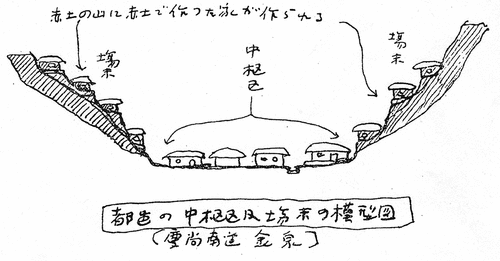 赤土の山に赤土で作つた家が作られる
場末
中枢区
場末
都邑の中枢区及場末の模型図
(慶尚南道 金泉)